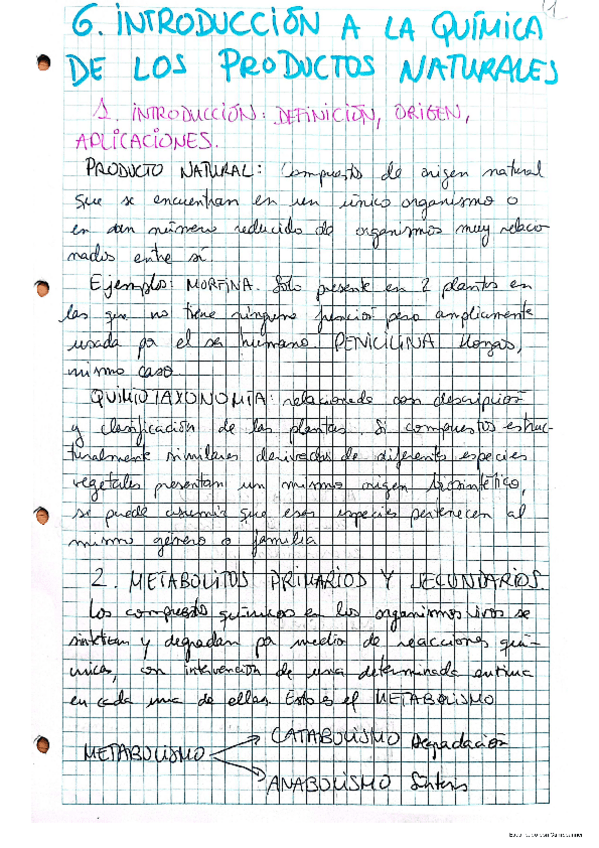 1
6. INTRODUCCIÓN A LA QUÍMICA
DE LOS PRODUCTOS NATURALES
1. INTRODUCCIÓN: DEFINICIÓN, ORIGEN,
APLICACIONES.
PRODUCTO NATURAL: Compuesto de origen natural
que se encuentran en un único organismo o
en un número reducido de organismos muy relacio
nados entre sí.
Ejemplo: MORFINA. Sólo presente en 2 plantas en
las que no tiene ninguna función pero ampliamente
usada por el ser humano. PENICILINA Hongos,
mismo caso.
QUIMIOTAXONOMÍA: relacionado con descripción
y clasificación de las plantas. Si compuestos estruc-
turalmente similares derivados de diferentes especies
vegetales presentan un mismo origen biosintético,
se puede asumir que esas especies pertenecen al
mismo género o familia
2. METABOLITOS PRIMARIOS Y SECUNDARIOS.
Los compuestos químicos en los organismos vivos se
sintetizan y degradan por medio de reacciones quí-
micas, con intervención de una determinada enzima
en cada una de ellas. Esto es el METABOLISMO
METABOLISMO
CATABOLISMO Degradación
ANABOLISMO Síntesis